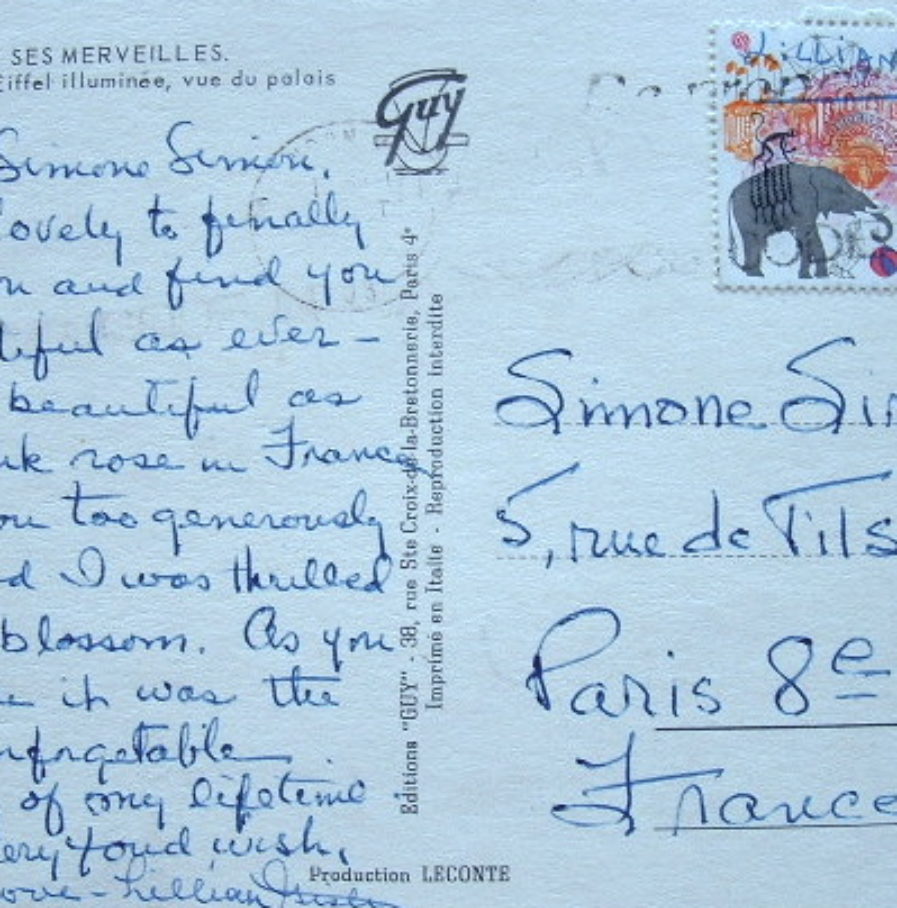 SES MERVEILLES.
Eiffel illuminée, vue du palais
Guy
Simone Simon,
lovely to finally
and find you
as ever -
beautiful as
rose in France
you too generously
I was thrilled
blossom. As you
it was the
unforgetable
of my lifetime
fond wish,
Love - Lillian
Editions "GUY" - 38, rue Ste Croix-de-la-Bretonnerie, Paris 4e
Imprimé en Italie - Reproduction interdite
Production LECONTE
LILLIAN
Simone Sim
5, rue de Tils
Paris 8e
France